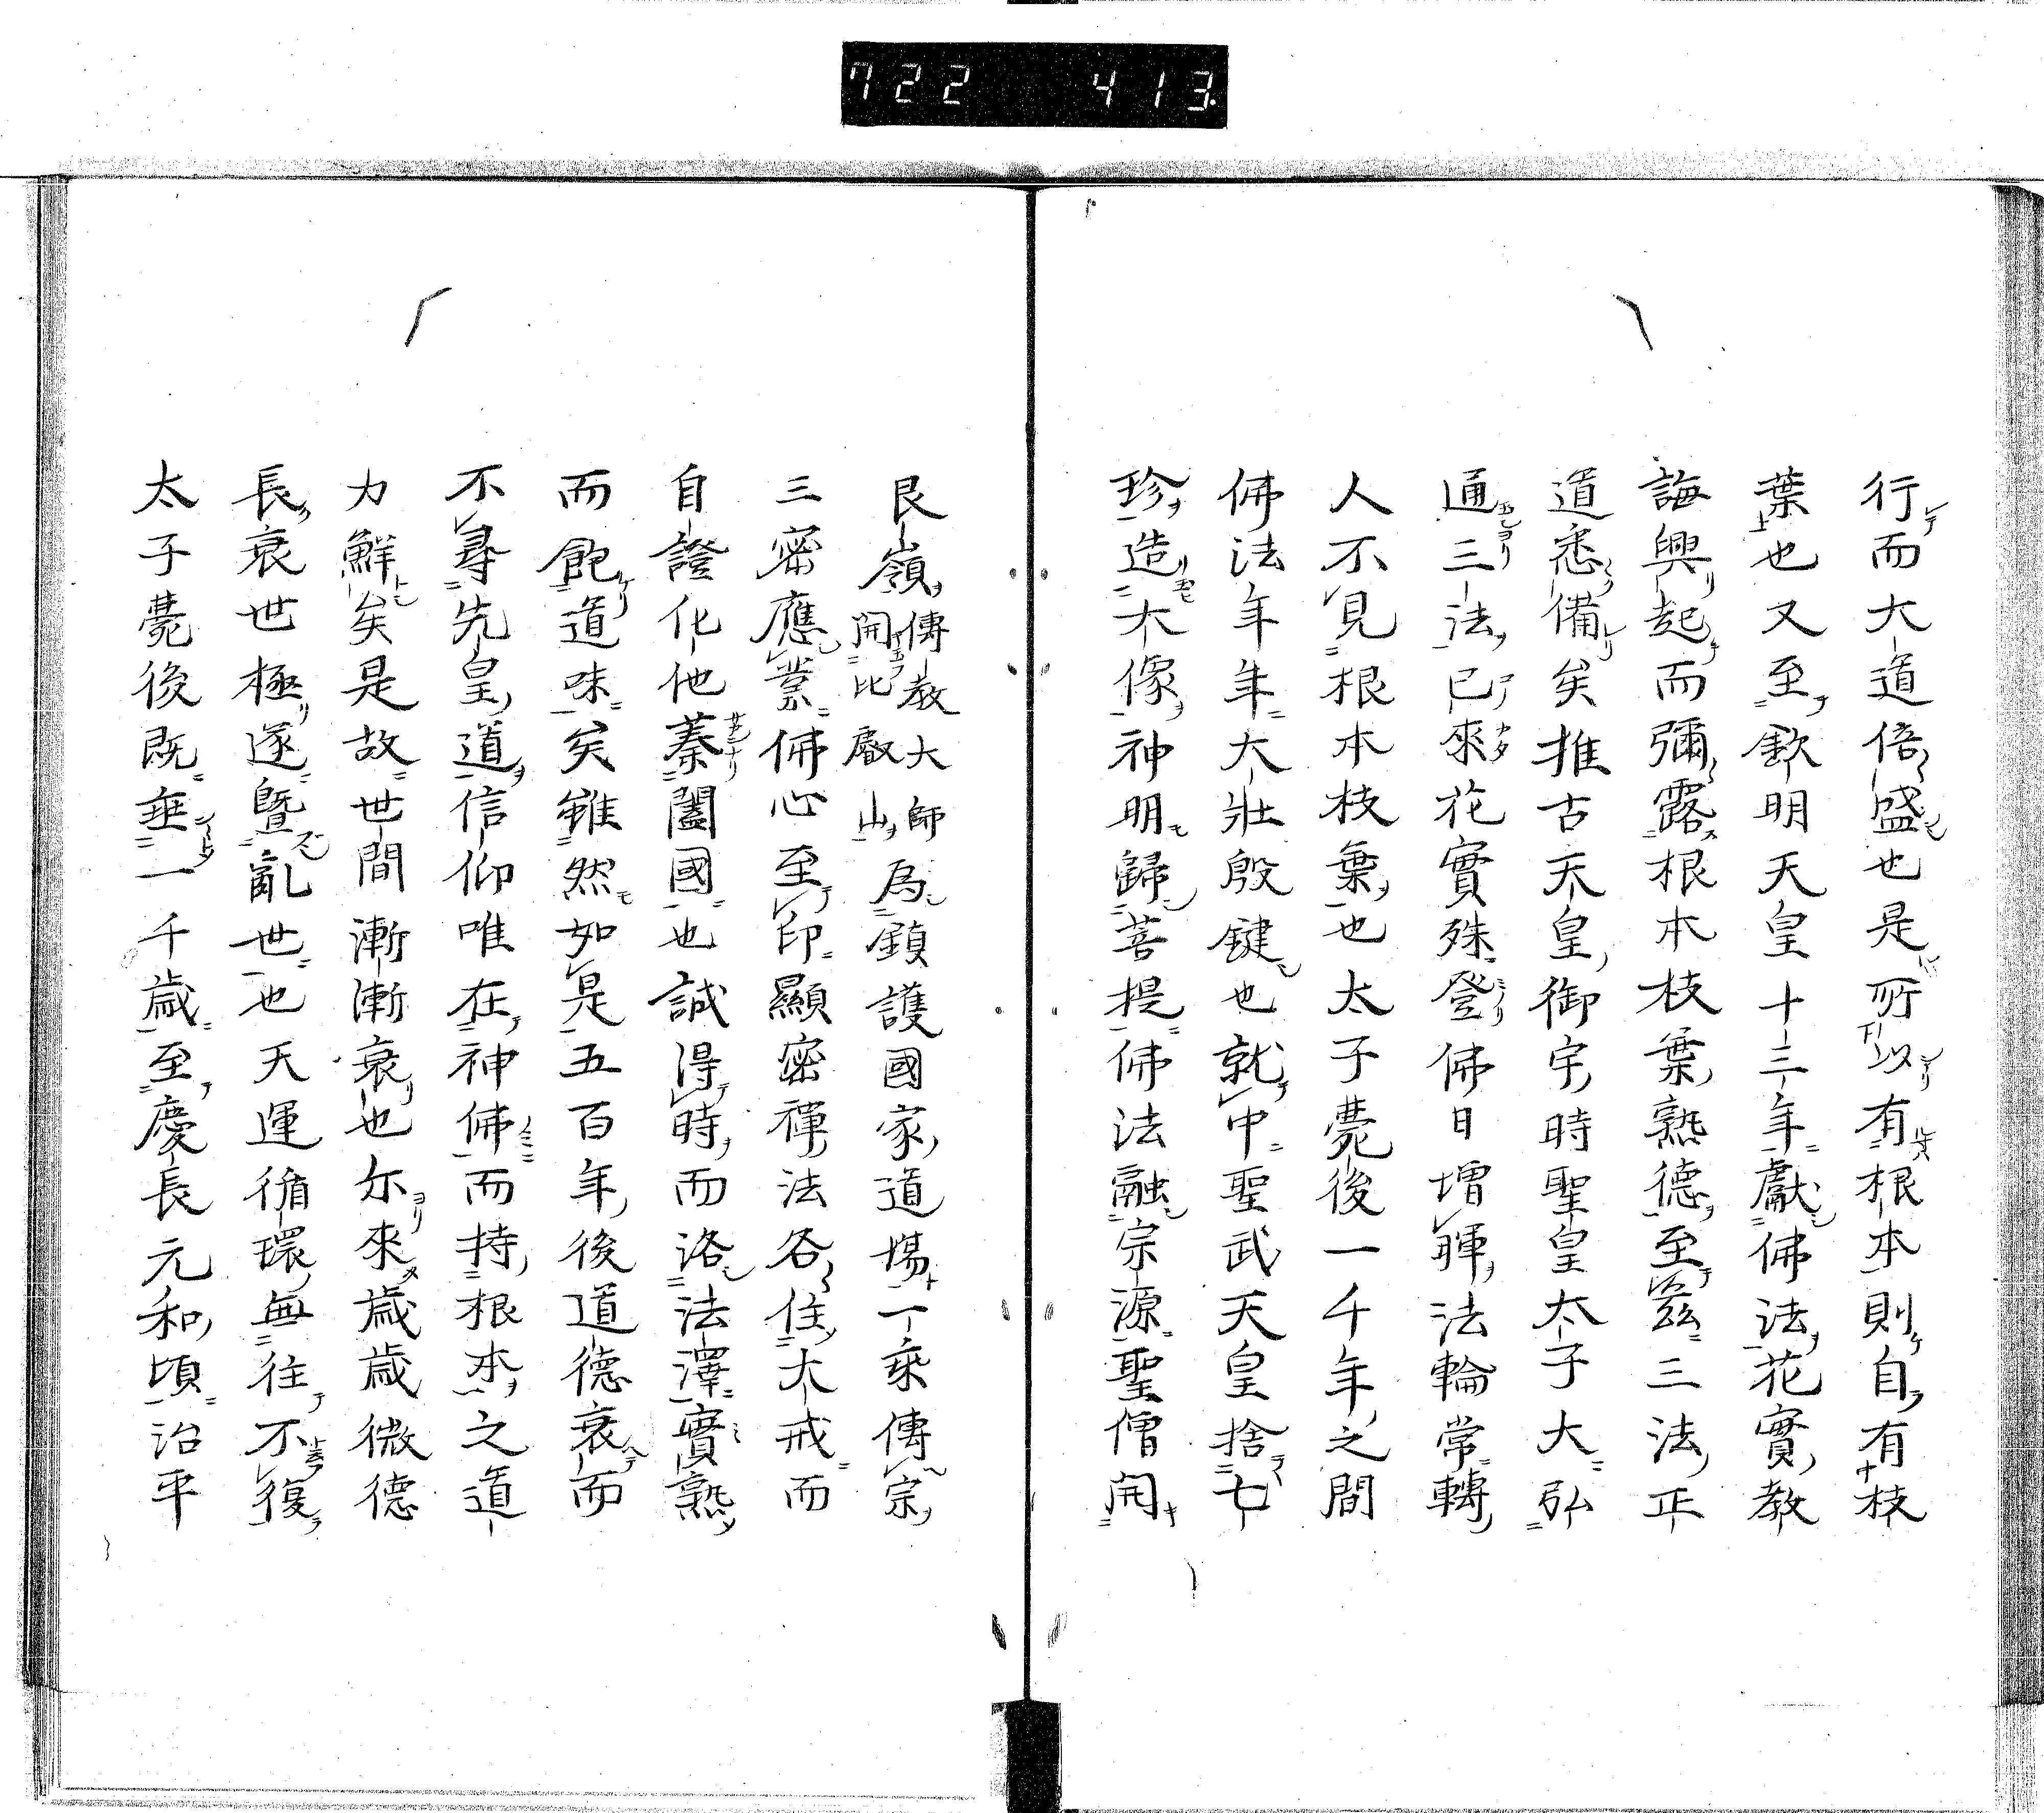 722 413
行而大道倍盛也是所以有根本則自有枝
葉也又至欽明天皇十三年獻佛法花實教
誨興起而彌露根本枝葉熟德至茲三法正
道悉備矣推古天皇御宇時聖皇太子大弘
通三法已來花實殊登佛日增暉法輪常轉
人不見根本枝葉也太子薨後一千年之間
佛法年年大壯殷鍵也就中聖武天皇捨七
珍造大像神明歸菩提佛法融宗源聖僧開
艮嶺傳教大師開比叡山為鎮護國家道場一乘傳宗
三密應業佛心至印顯密禪法各住大戒而
自證化他蓁闔國也誠得時而洛法澤實熟
而飽道味矣雖然如是五百年後道德衰而
不尋先皇道信仰唯在神佛而持根本之道
力鮮矣是故世間漸漸衰也尓來歲歲微德
長衰世極遂曁亂世也天運循環無往不復
太子薨後既垂一千歲至慶長元和頃治平